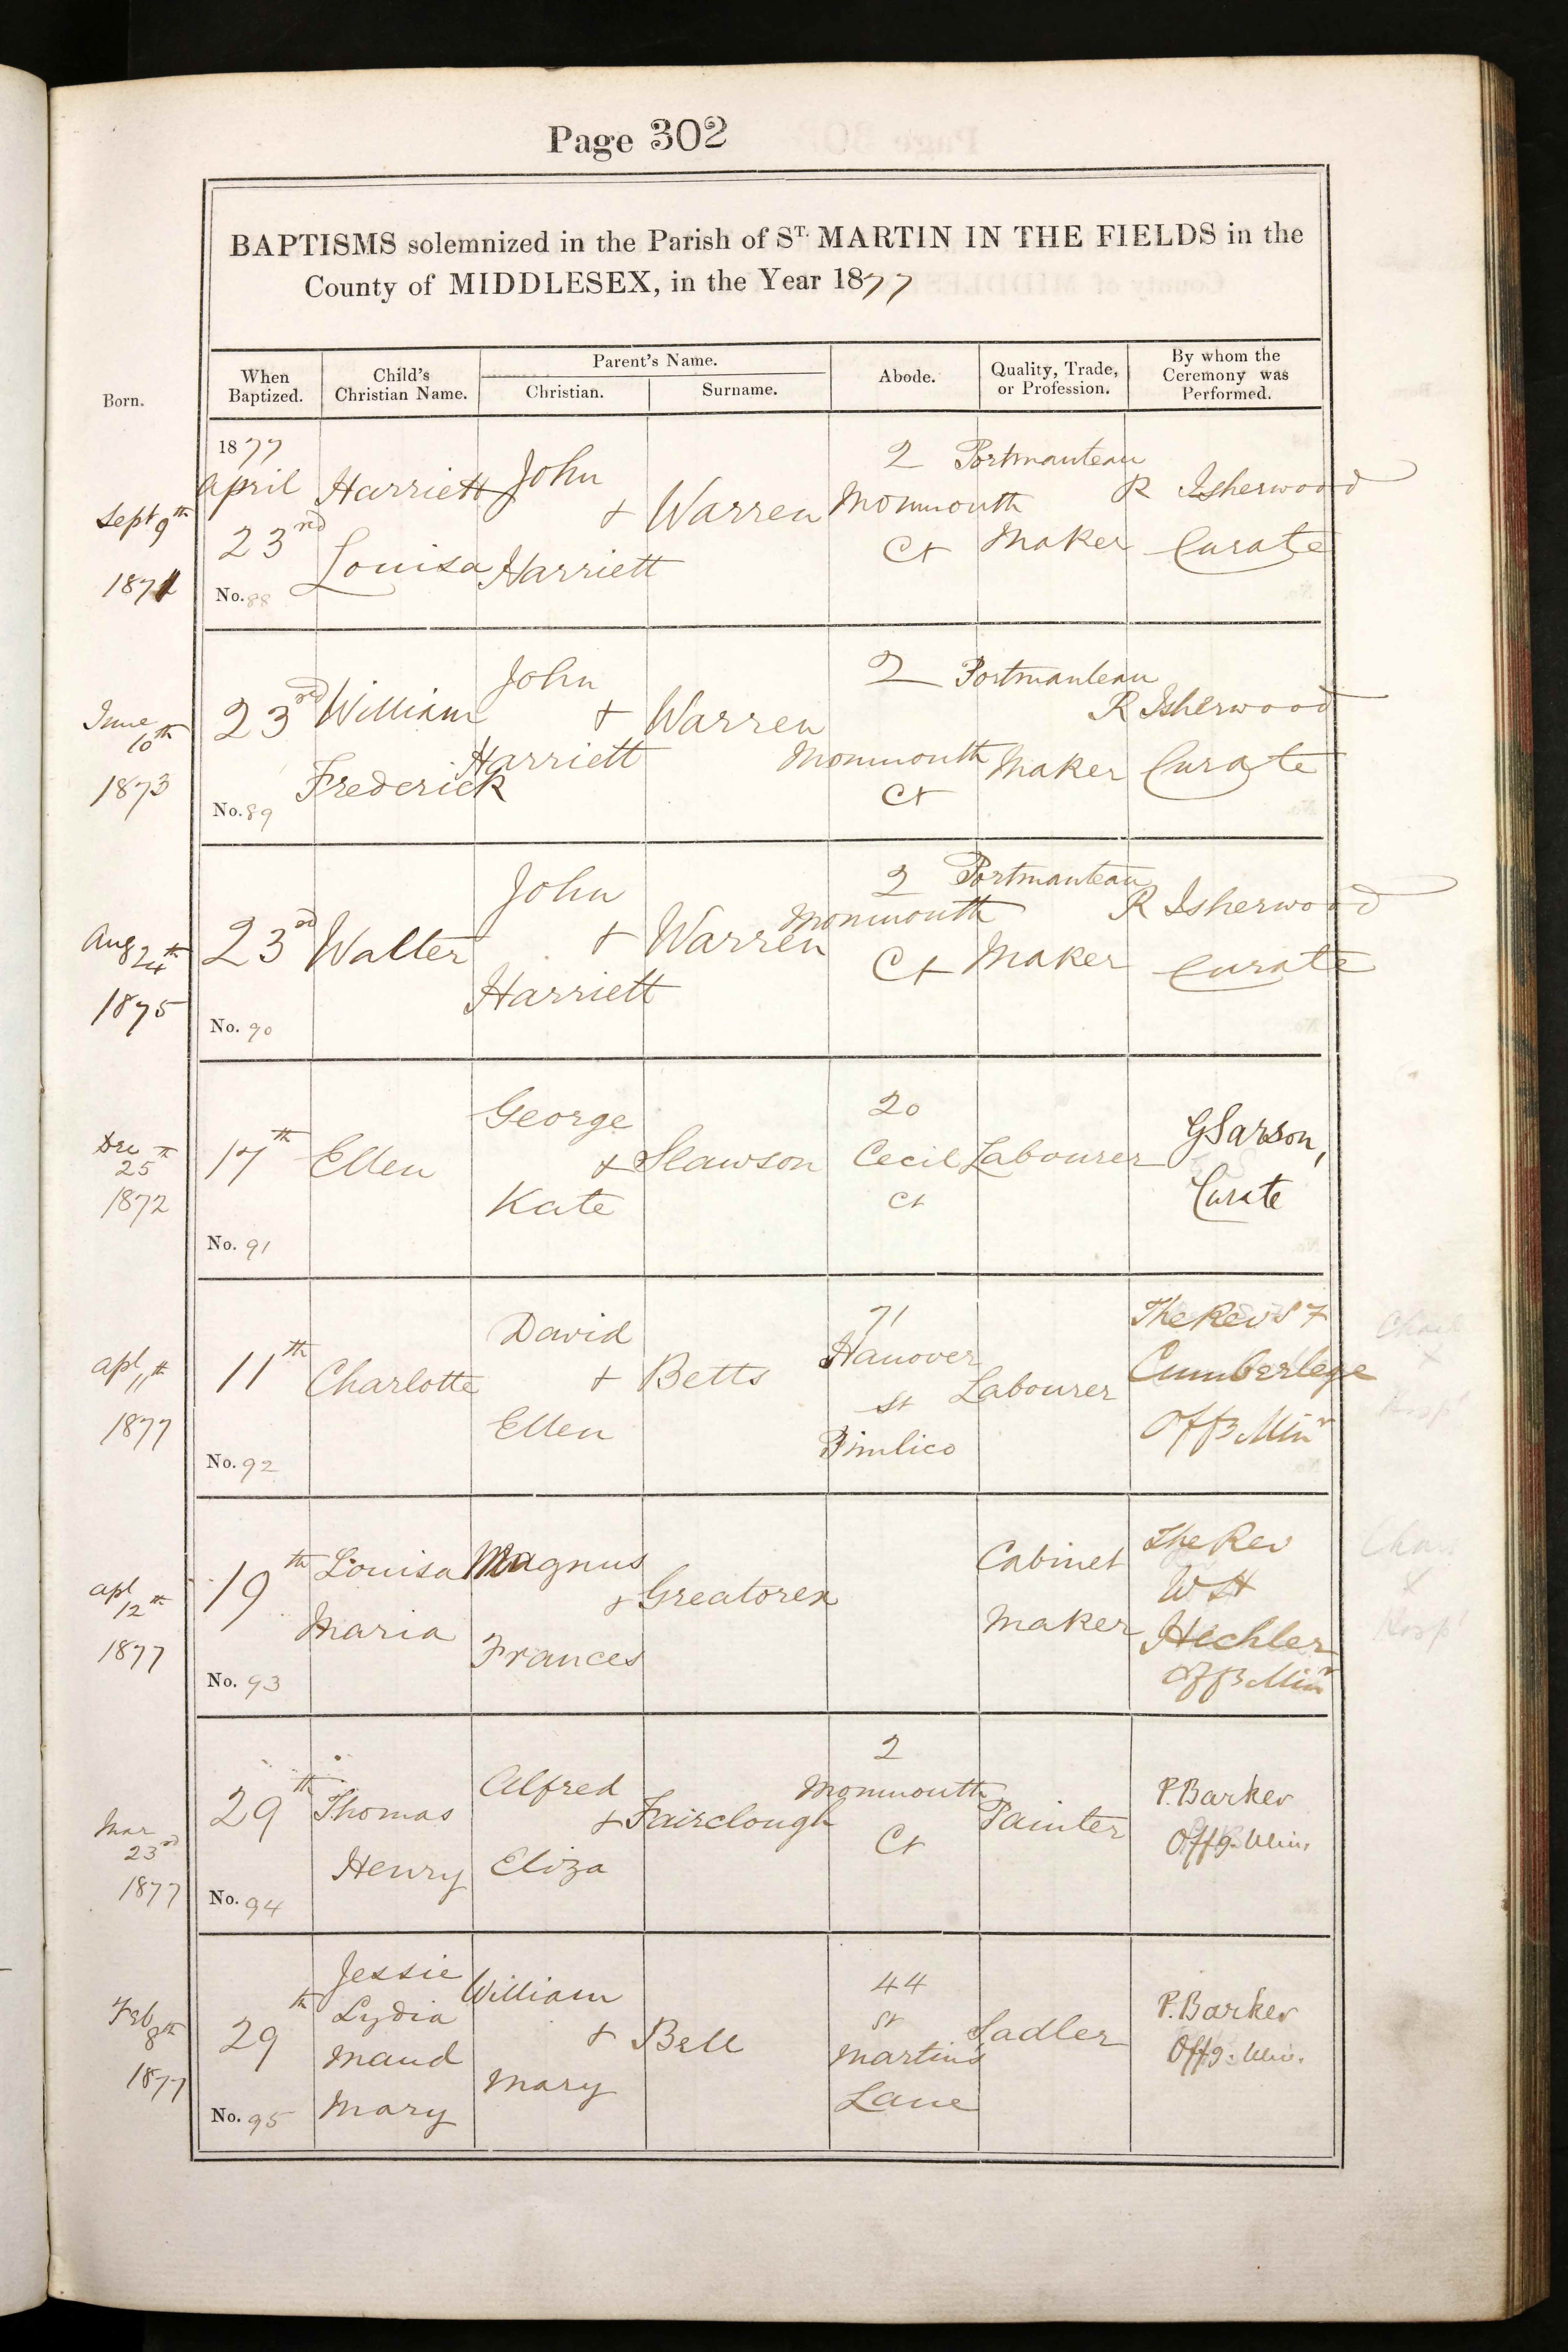 Page 302
BAPTISMS solemnized in the Parish of ST. MARTIN IN THE FIELDS in the
County of MIDDLESEX, in the Year 1877
Born.
When Baptized.
Child's Christian Name.
Parent's Name.
Christian.
Surname.
Abode.
Quality, Trade, or Profession.
By whom the Ceremony was Performed.
Sept 9th
1871
1877
April
23rd
No. 88
Harriett
Louisa
John
+
Harriett
Warren
2
Monmouth
Ct
Portmanteau
Maker
R Isherwood
Curate
June
10th
1873
23rd
No. 89
William
Frederick
John
+
Harriett
Warren
2
Monmouth
Ct
Portmanteau
Maker
R Isherwood
Curate
Aug 24th
1875
23rd
No. 90
Walter
John
+
Harriett
Warren
2
Monmouth
Ct
Portmanteau
Maker
R Isherwood
Curate
Dec
25th
1872
17th
No. 91
Ellen
George
+
Kate
Slawson
20
Cecil
Ct
Labourer
G Sarson,
Curate
Apl 11th
1877
11th
No. 92
Charlotte
David
+
Ellen
Betts
71
Hanover
St
Pimlico
Labourer
The Rev S F
Cumberlege
Offg Minr
Apl
12th
1877
19th
No. 93
Louisa
Maria
Magnus
+
Frances
Greatorex
Cabinet
Maker
The Rev
W H
Hechler
Offg Minr
Mar
23rd
1877
29th
No. 94
Thomas
Henry
Alfred
+
Eliza
Fairclough
2
Monmouth
Ct
Painter
P. Barker
Offg. Min.
Feb
8th
1877
29th
No. 95
Jessie
Lydia
Maud
Mary
William
+
Mary
Bell
44
St
Martin's
Lane
Sadler
P. Barker
Offg. Min.